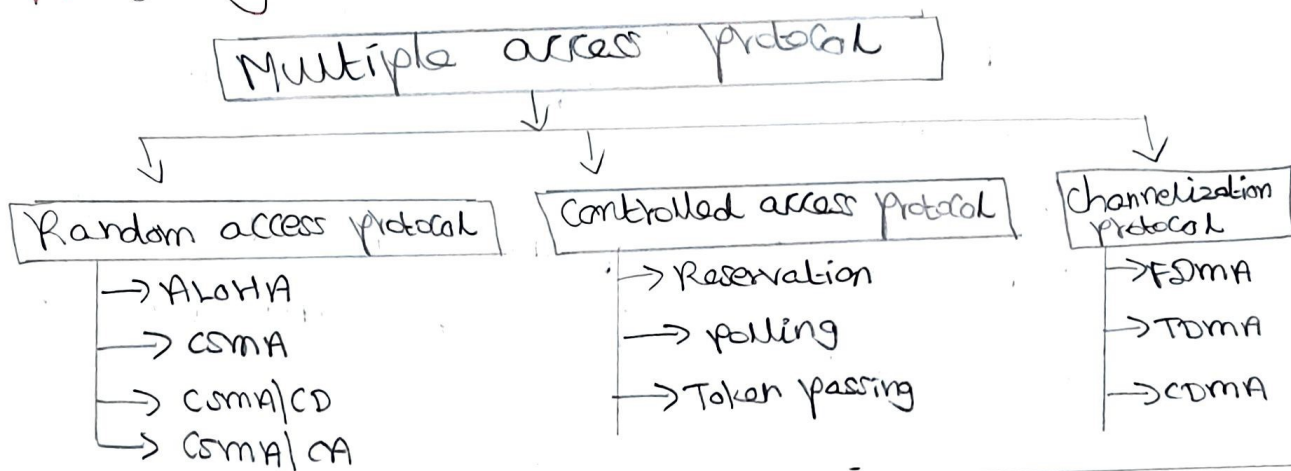 Multiple access protocol
Random access protocol
→ ALOHA
→ CSMA
→ CSMA|CD
→ CSMA|CA
Controlled access protocol
→ Reservation
→ polling
→ Token passing
Channelization
protocol
→ FDMA
→ TDMA
→ CDMA